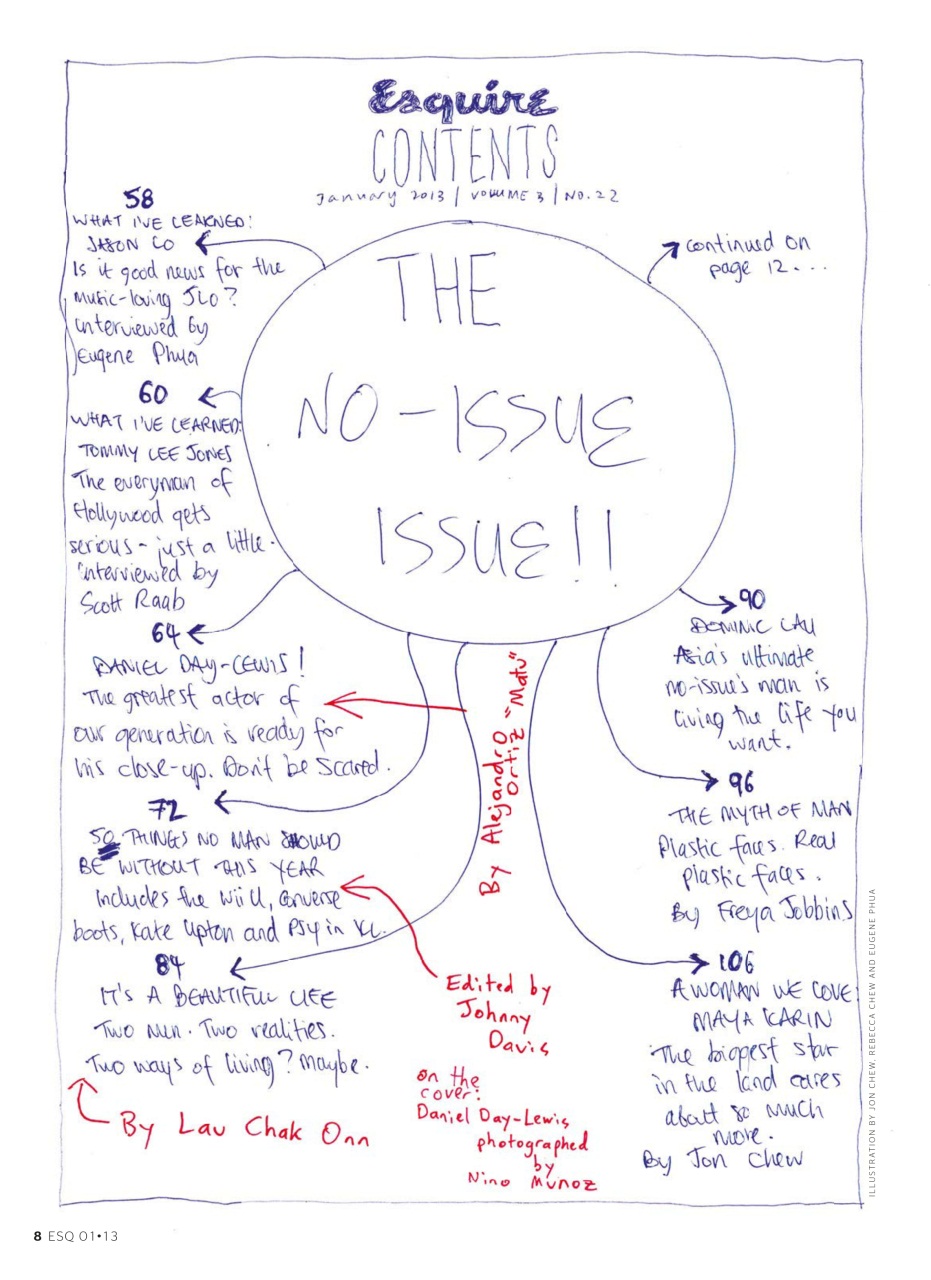 Esquire
CONTENTS
January 2013 | VOLUME 3 | NO.22
58
WHAT I'VE LEARNED:
JASON LO
Is it good news for the
music-loving JLO?
interviewed by
Eugene Phua
THE
NO-ISSUE
ISSUE!!
continued on
page 12....
60
WHAT I'VE LEARNED:
TOMMY LEE JONES
The everyman of
Hollywood gets
serious - just a little.
interviewed by
Scott Raab
64
DANIEL DAY-LEWIS!
The greatest actor of
our generation is ready for
his close-up. Don't be scared.
By Alejandro "Matu"
Ortiz
72
50 THINGS NO MAN SHOULD
BE WITHOUT THIS YEAR
includes the Wii U, Converse
boots, Kate Upton and PSY in KL.
Edited by
Johnny
Davis
84
IT'S A BEAUTIFUL LIFE
Two men. Two realities.
Two ways of living? Maybe.
By Lau Chak Onn
on the
cover:
Daniel Day-Lewis
photographed
by
Nino Munoz
90
DOMINIC LAU
Asia's ultimate
no-issue's man is
living the life you
want.
96
THE MYTH OF MAN
Plastic faces. Real
plastic faces.
By Freya Jobbins
106
A WOMAN WE LOVE
MAYA KARIN
The biggest star
in the land cares
about so much
more.
By Jon Chew
ILLUSTRATION BY JON CHEW, REBECCA CHEW AND EUGENE PHUA
8 ESQ 01•13